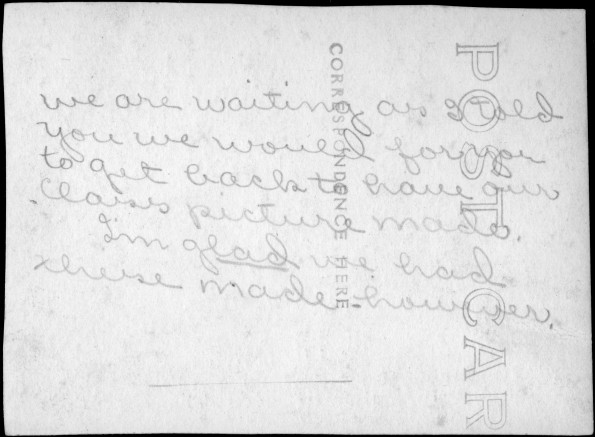 we are waiting as I told
you we would for you
to get back to have our
Class picture made.
I'm glad we had
these made - however.
POST CAR
CORRESPONDENCE HERE